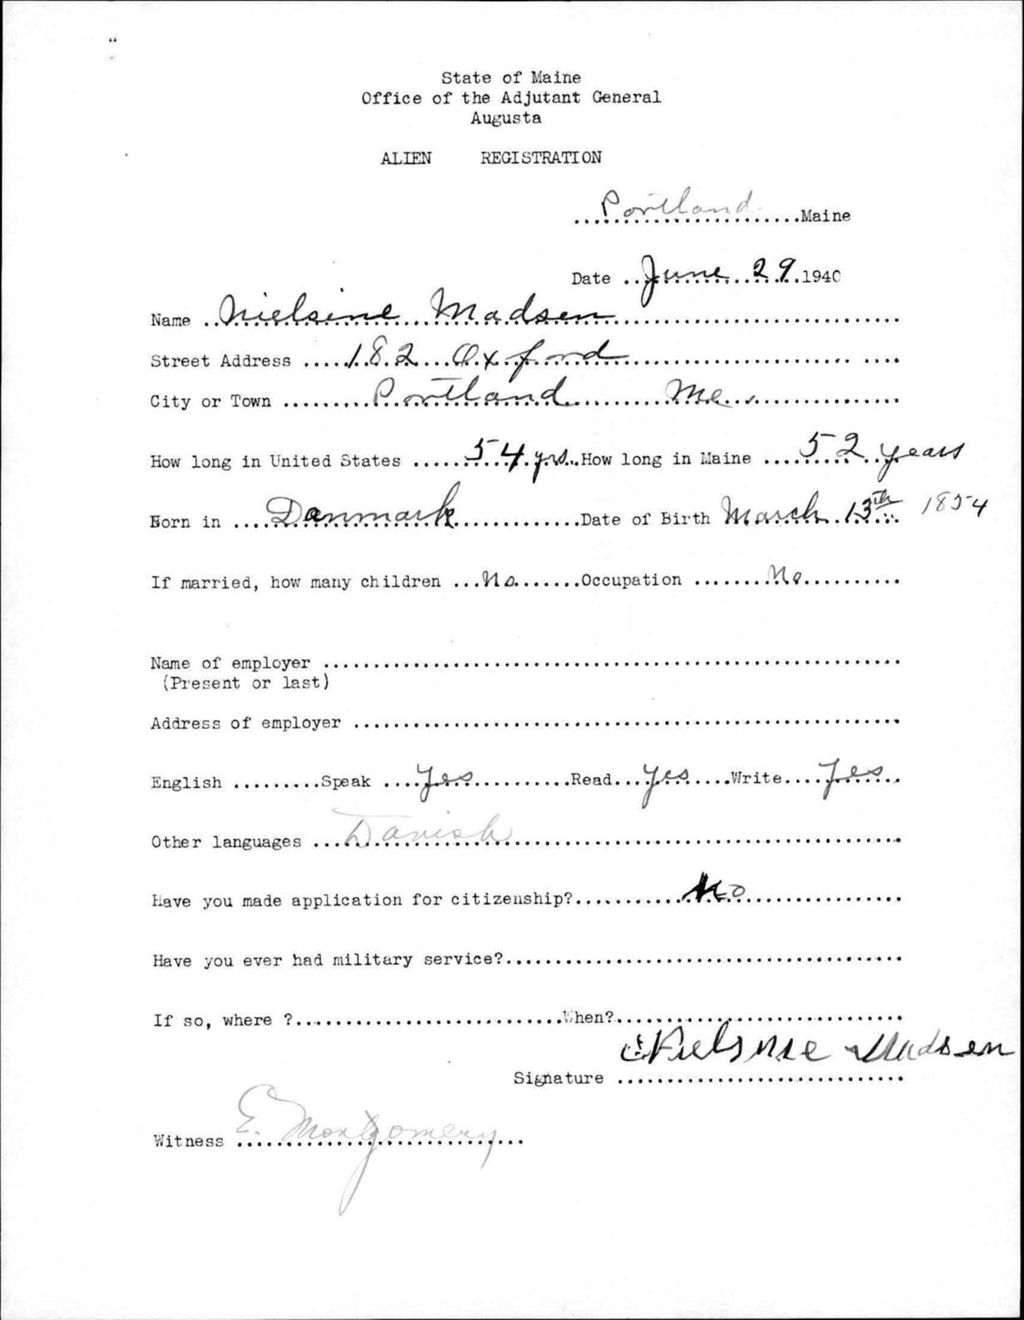 State of Maine
Office of the Adjutant General
Augusta
ALIEN REGISTRATION
Portland Maine
Date June 29 1940
Name Nielsine Madsen
Street Address 182 Oxford
City or Town Portland Me.
How long in United States 54 yrs. How long in Maine 52 years
Born in Danmark Date of Birth March 13th 1854
If married, how many children No Occupation No
Name of employer
(Present or last)
Address of employer
English Speak Yes Read Yes Write Yes
Other languages Danish
Have you made application for citizenship? No
Have you ever had military service?
If so, where ? When?
Nielsine Madsen
Signature
Witness E. Montgomery